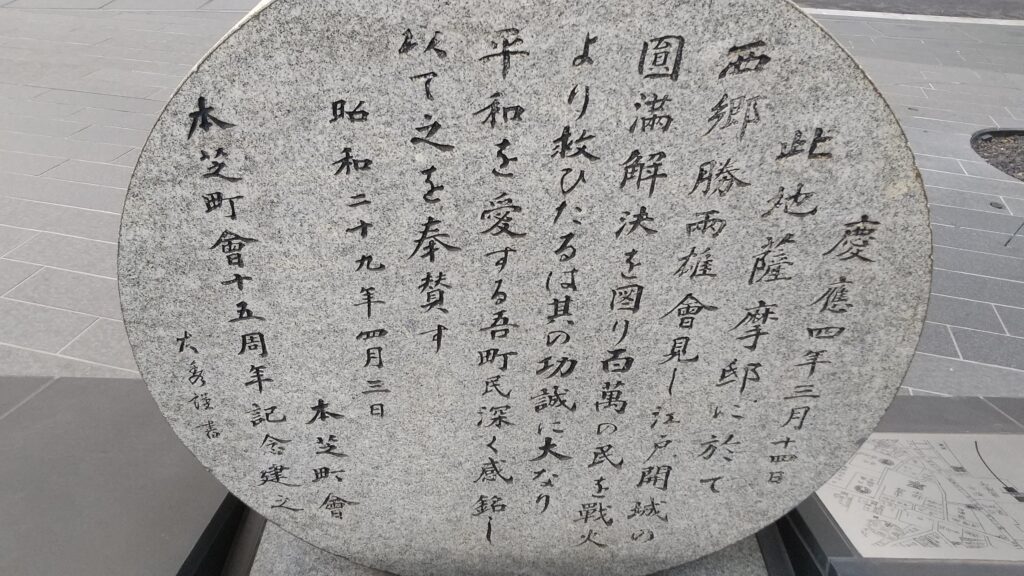 慶應四年三月十四日
此地薩摩邸に於て
西郷勝兩雄會見し江戸開城の
圓滿解決を図り百萬の民を戰火
より救ひたるは其の功誠に大なり
平和を愛する吾町民深く感銘し
以て之を奉賛す
昭和二十九年四月三日
本芝町會
本芝町會十五周年記念建之
大秀謹書